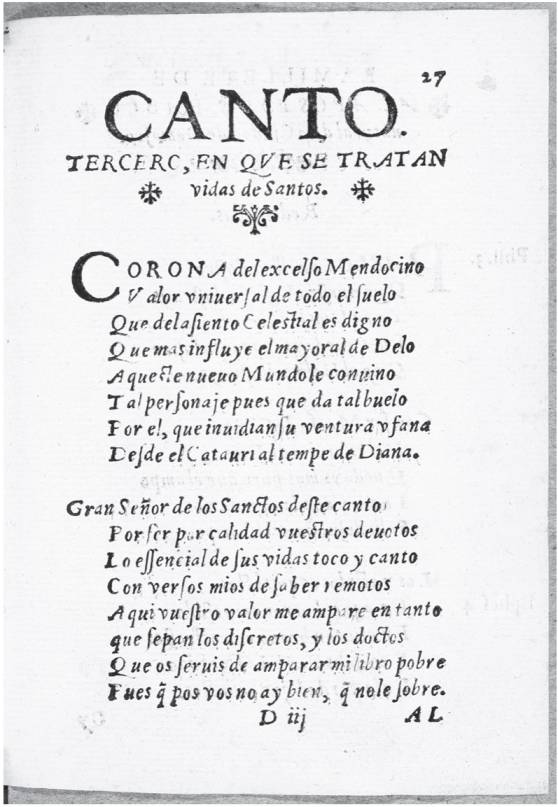 27
CANTO.
TERCERC, EN QVE SE TRATAN
vidas de Santos.
CORONA del excelſo Mendocino
Valor vniuerſal de todo el ſuelo
Que delaſiento Celeſtial es digno
Que mas influye el mayoral de Delo
A queſte nueuo Mundo le conuino
Tal perſonaje pues que da tal buelo
Por el, que inuidian ſu ventura vfana
Deſde el Catauri al tempe de Diana.
Gran Señor de los Sanctos deſte canto
Por ſer por calidad vueſtros deuotos
Lo eſſencial de ſus vidas toco y canto
Con verſos mios de ſaber remotos
Aqui vueſtro valor me ampare en tanto
que ſepan los diſcretos, y los doctos
Que os ſeruis de amparar mi libro pobre
Pues q̃ pos vos no ay bien, q̃ nole ſobre.
D iij AL